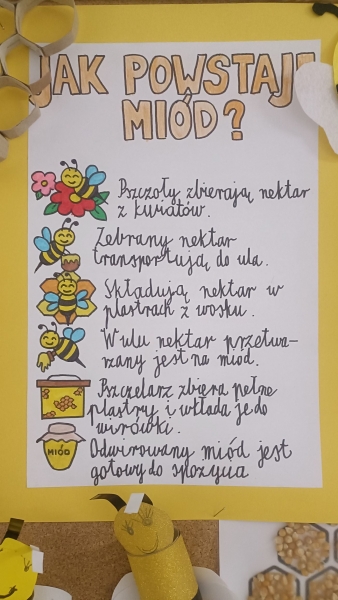 JAK POWSTAJE
MIÓD?
Pszczoły zbierają nektar
z kwiatów.
Zebrany nektar
transportują do ula.
Składują nektar w
plastrach z wosku.
W ulu nektar przetwa-
rzany jest na miód.
Pszczelarz zbiera pełne
plastry i wkłada je do
wirówki.
MIÓD
Odwirowany miód jest
gotowy do spożycia